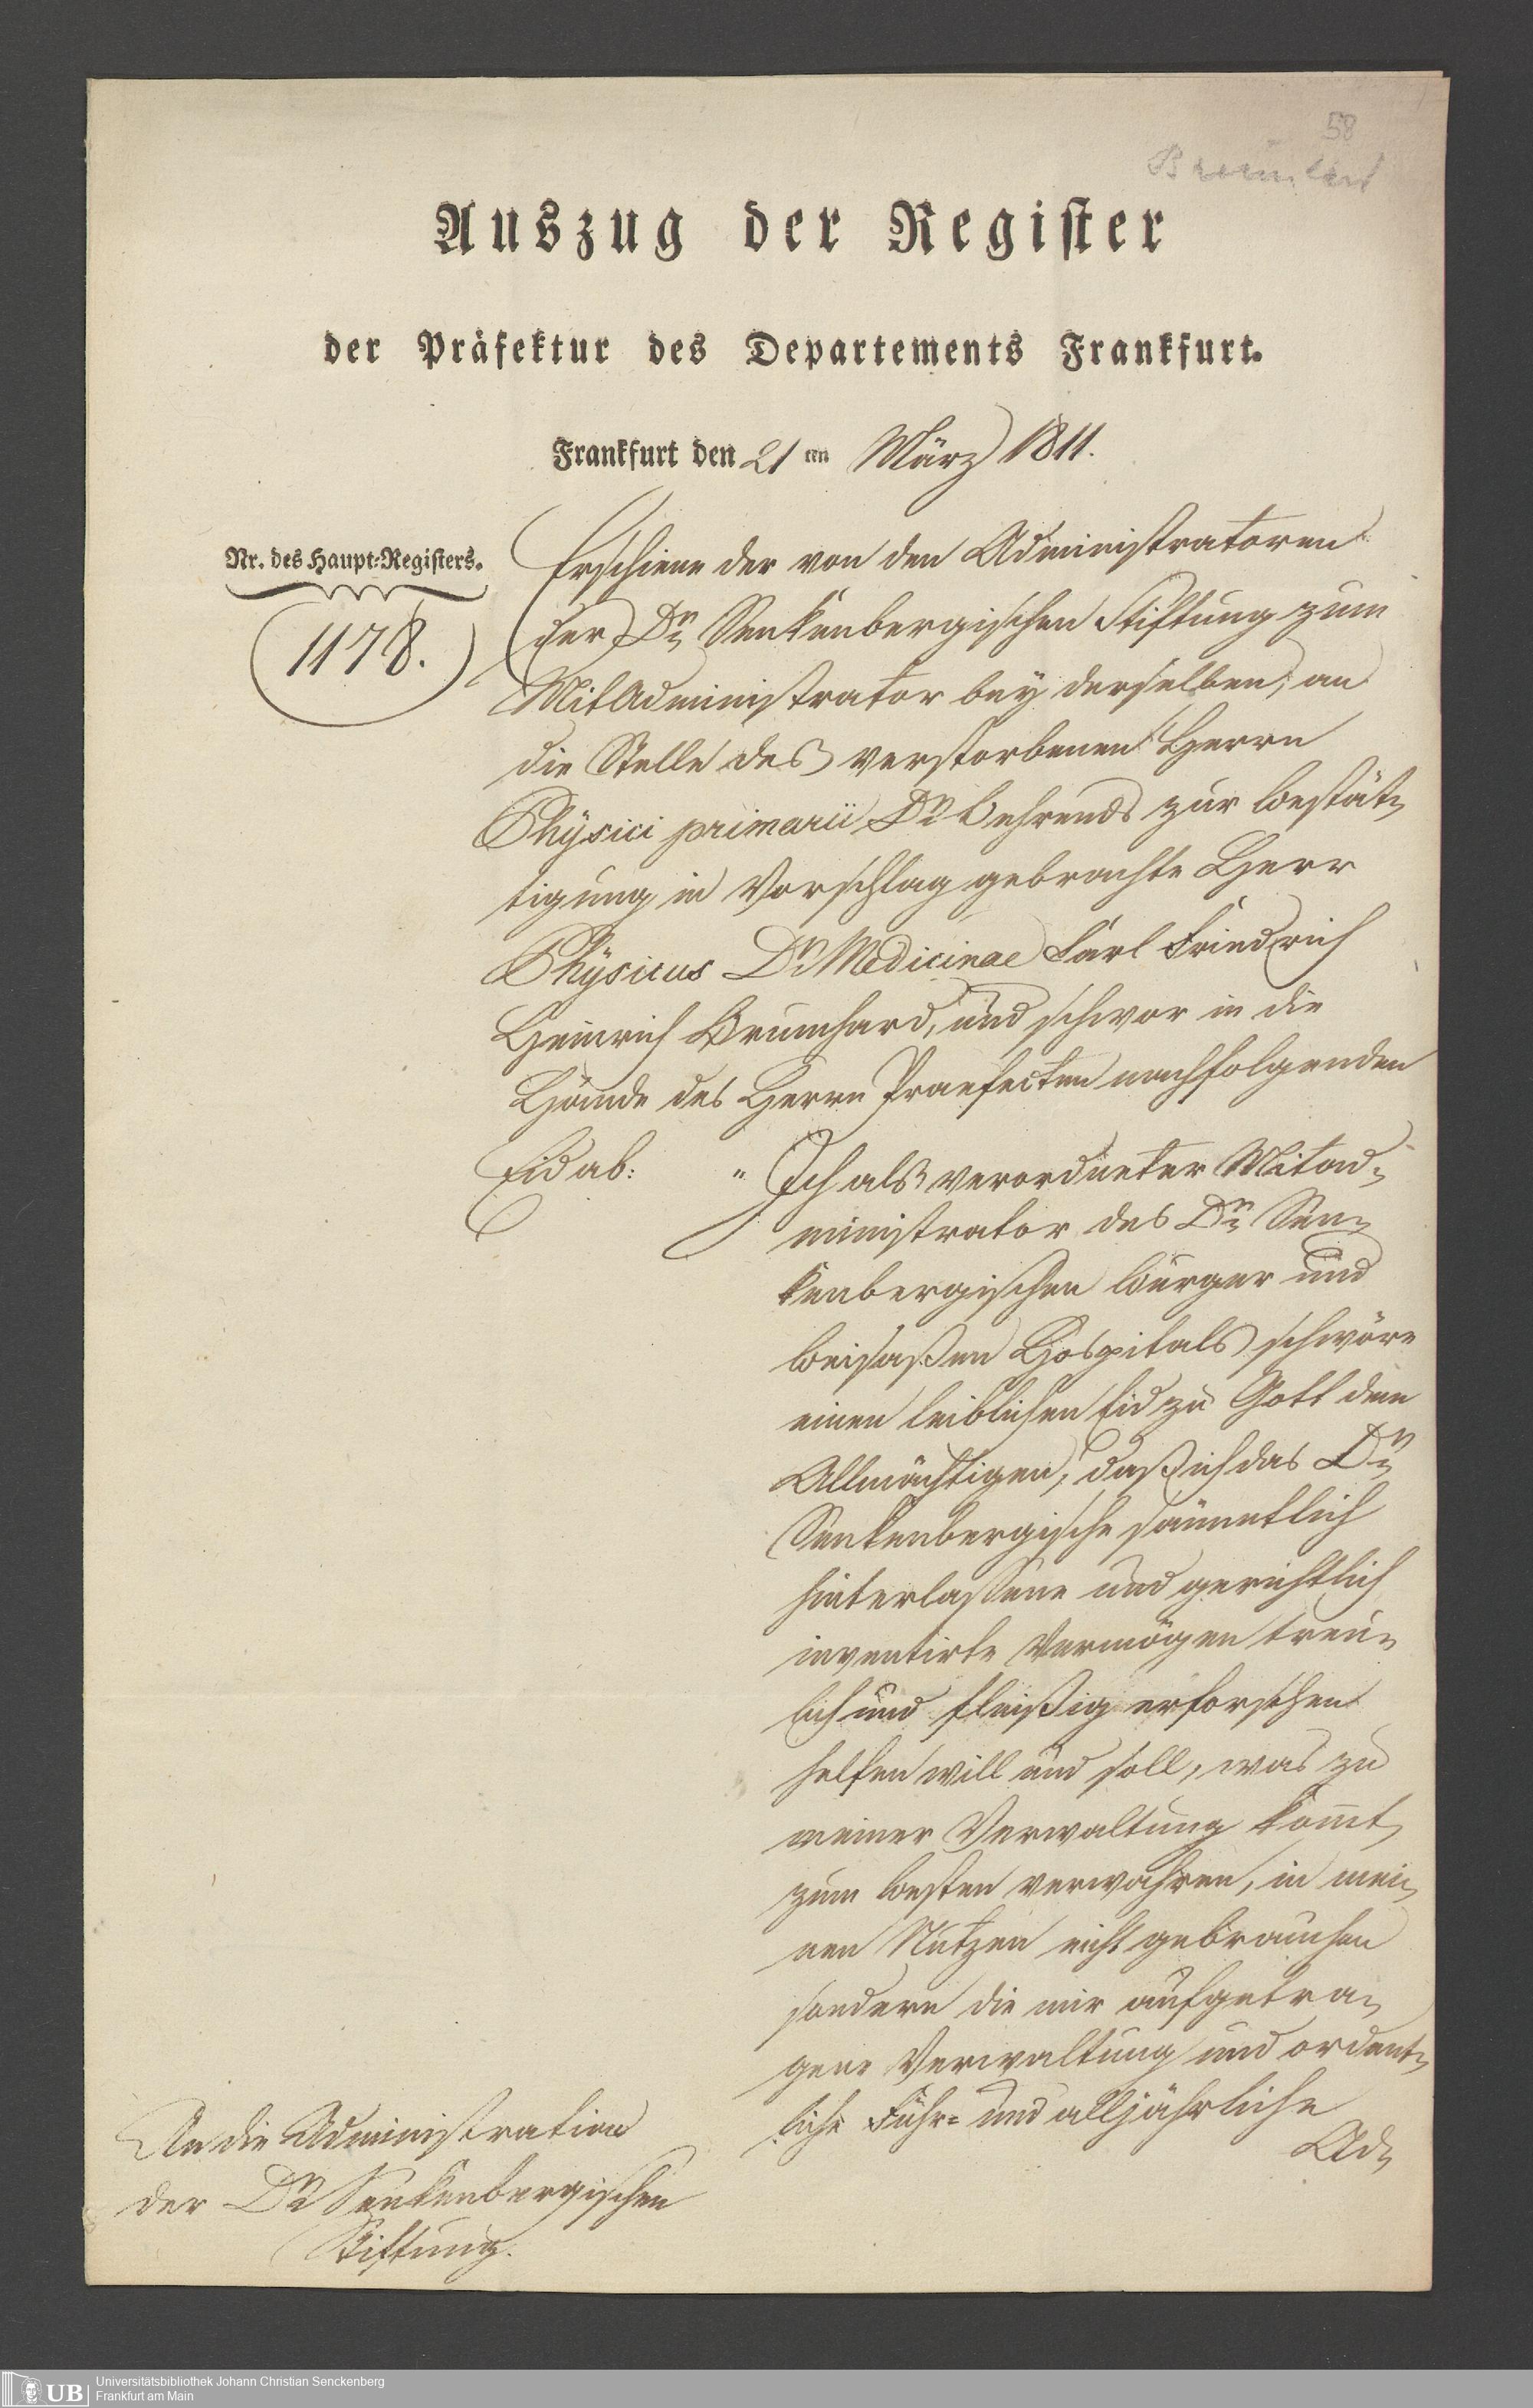 58
Auszug der Register
der Präfektur des Departements Frankfurt.
Frankfurt den 21ten März 1811.
Nr. des Haupt-Registers.
1178.
Erschiene der von den Administratoren
der Dr. Senkenbergischen Stiftung zum
MitAdministrator bey derselben, an
die Stelle des verstorbenen Herrn
Physici primarii Dr. Behrends zur Bestät-
tigung in Vorschlag gebrachte Herr
Physicus Dr. Medicinae Carl Friedrich
Heinrich Brumhard, und schwor in die
Hände des Herrn Praefecten nachfolgenden
Eid ab: " Ich als verordneter Mitad-
ministrator des Dr. Sen-
kenbergischen Bürger und
Beisaßen Hospitals schwöre
einen leiblichen Eid zu Gott dem
Allmächtigen, daß ich das Dr.
Senkenbergische sämmtlich
hinterlassene und gerichtlich
inventirte Vermögen treu-
lich und fleißig erforschen
helfen will und soll, was zu
meiner Verwaltung kommt,
zum besten verwahren, in mei-
nen Nutzen nicht gebrauchen
sondern die mir aufgetra-
gene Verwaltung und ordent-
liche Führ- und alljährliche
Ad-
An die Administration
der Dr. Senkenbergischen
Stiftung.
UB
Universitätsbibliothek Johann Christian Senckenberg
Frankfurt am Main